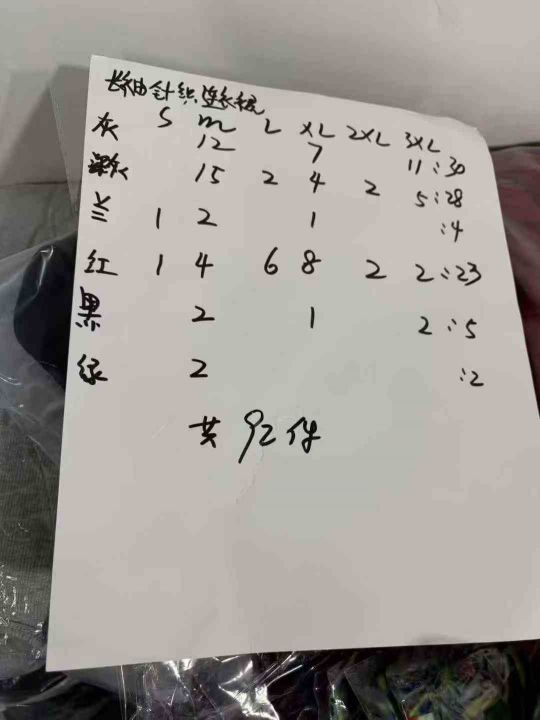 长袖针织连衣裙
灰 S M L XL 2XL 3XL
12 7 11:30
15 2 4 2 5:28
兰 1 2 1 :4
红 1 4 6 8 2 2:23
黑 2 1 2:5
绿 2 :2
共 92 件